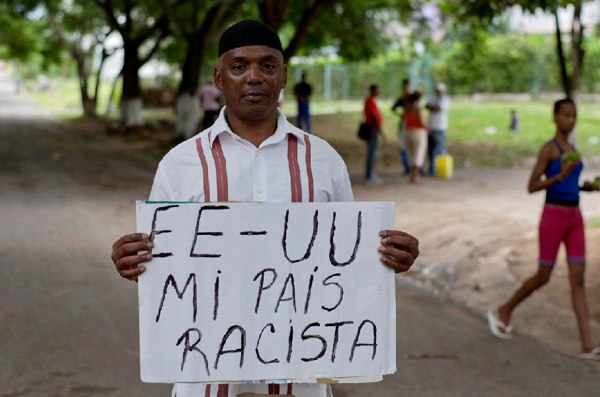 EE-UU
Mi PAiS
RACiSTA